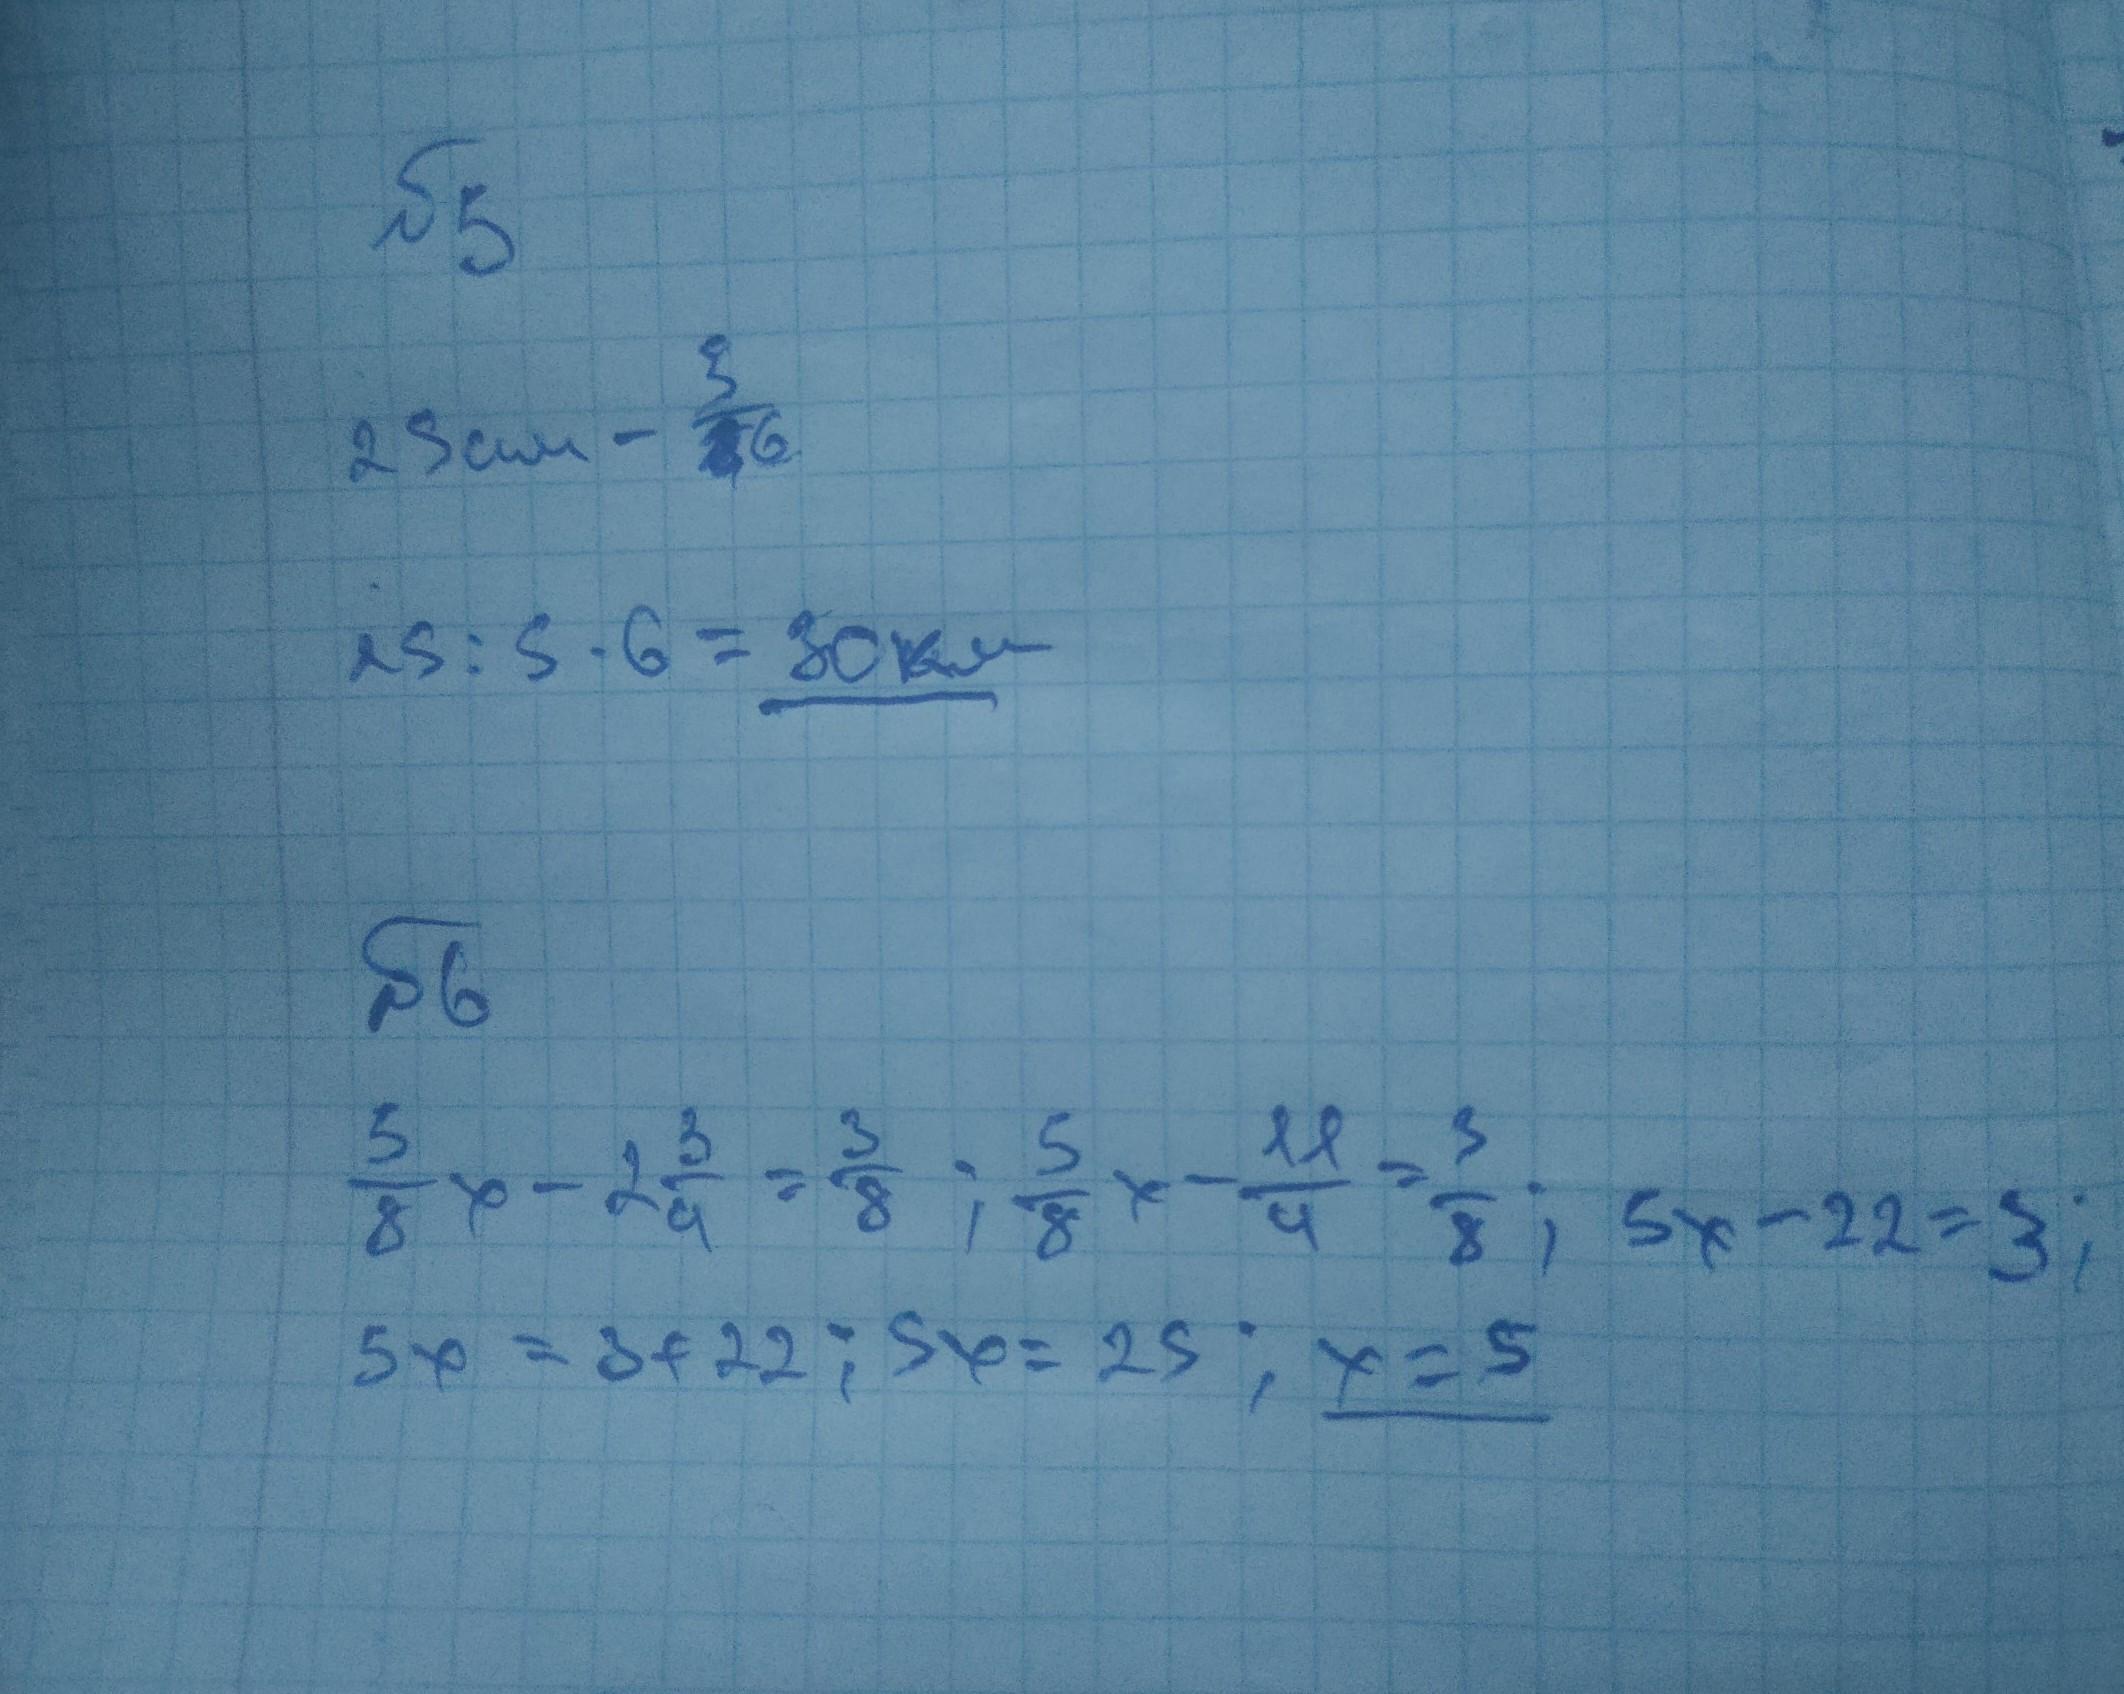 №5
25 см - 5/6
25 : 5 · 6 = 30 км
№6
5/8 x - 2 3/4 = 3/8 ; 5/8 x - 11/4 = 3/8 ; 5x - 22 = 3 ;
5x = 3 + 22 ; 5x = 25 ; x = 5